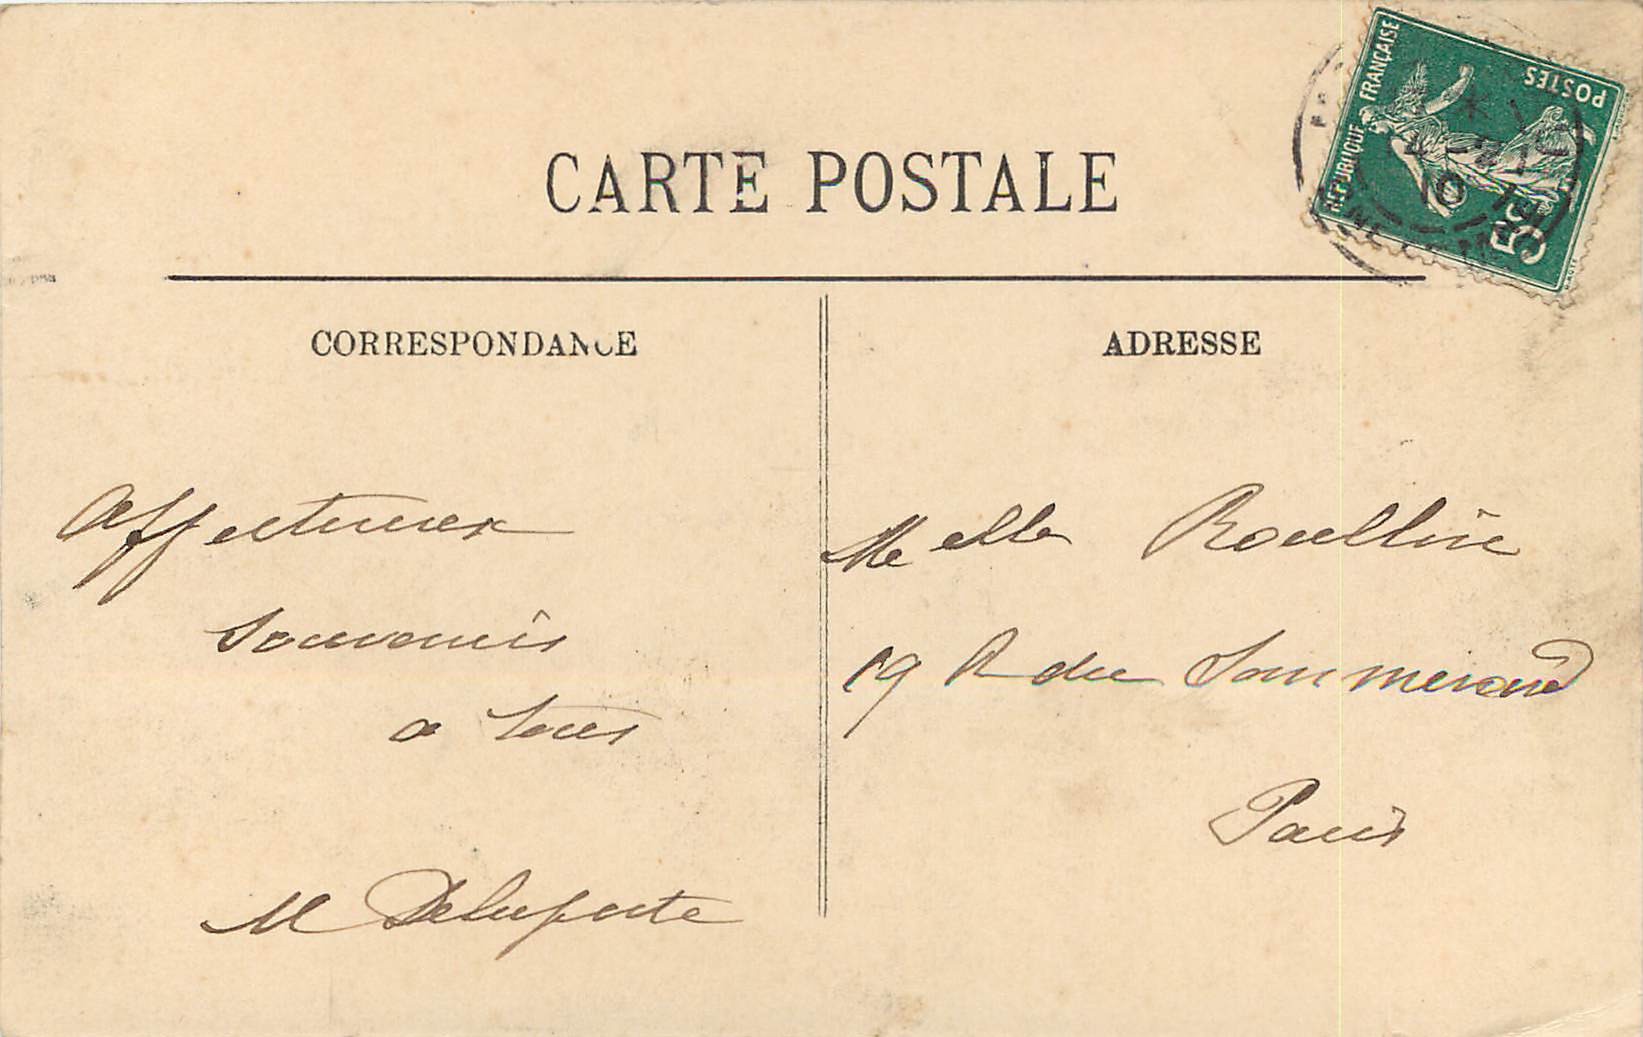 CARTE POSTALE
RÉPUBLIQUE FRANÇAISE
POSTES
5c
10
CORRESPONDANCE
ADRESSE
Affectueux
Souvenirs
a tous
M Delaporte
Melle Roulline
19 R du Sommerard
Paris